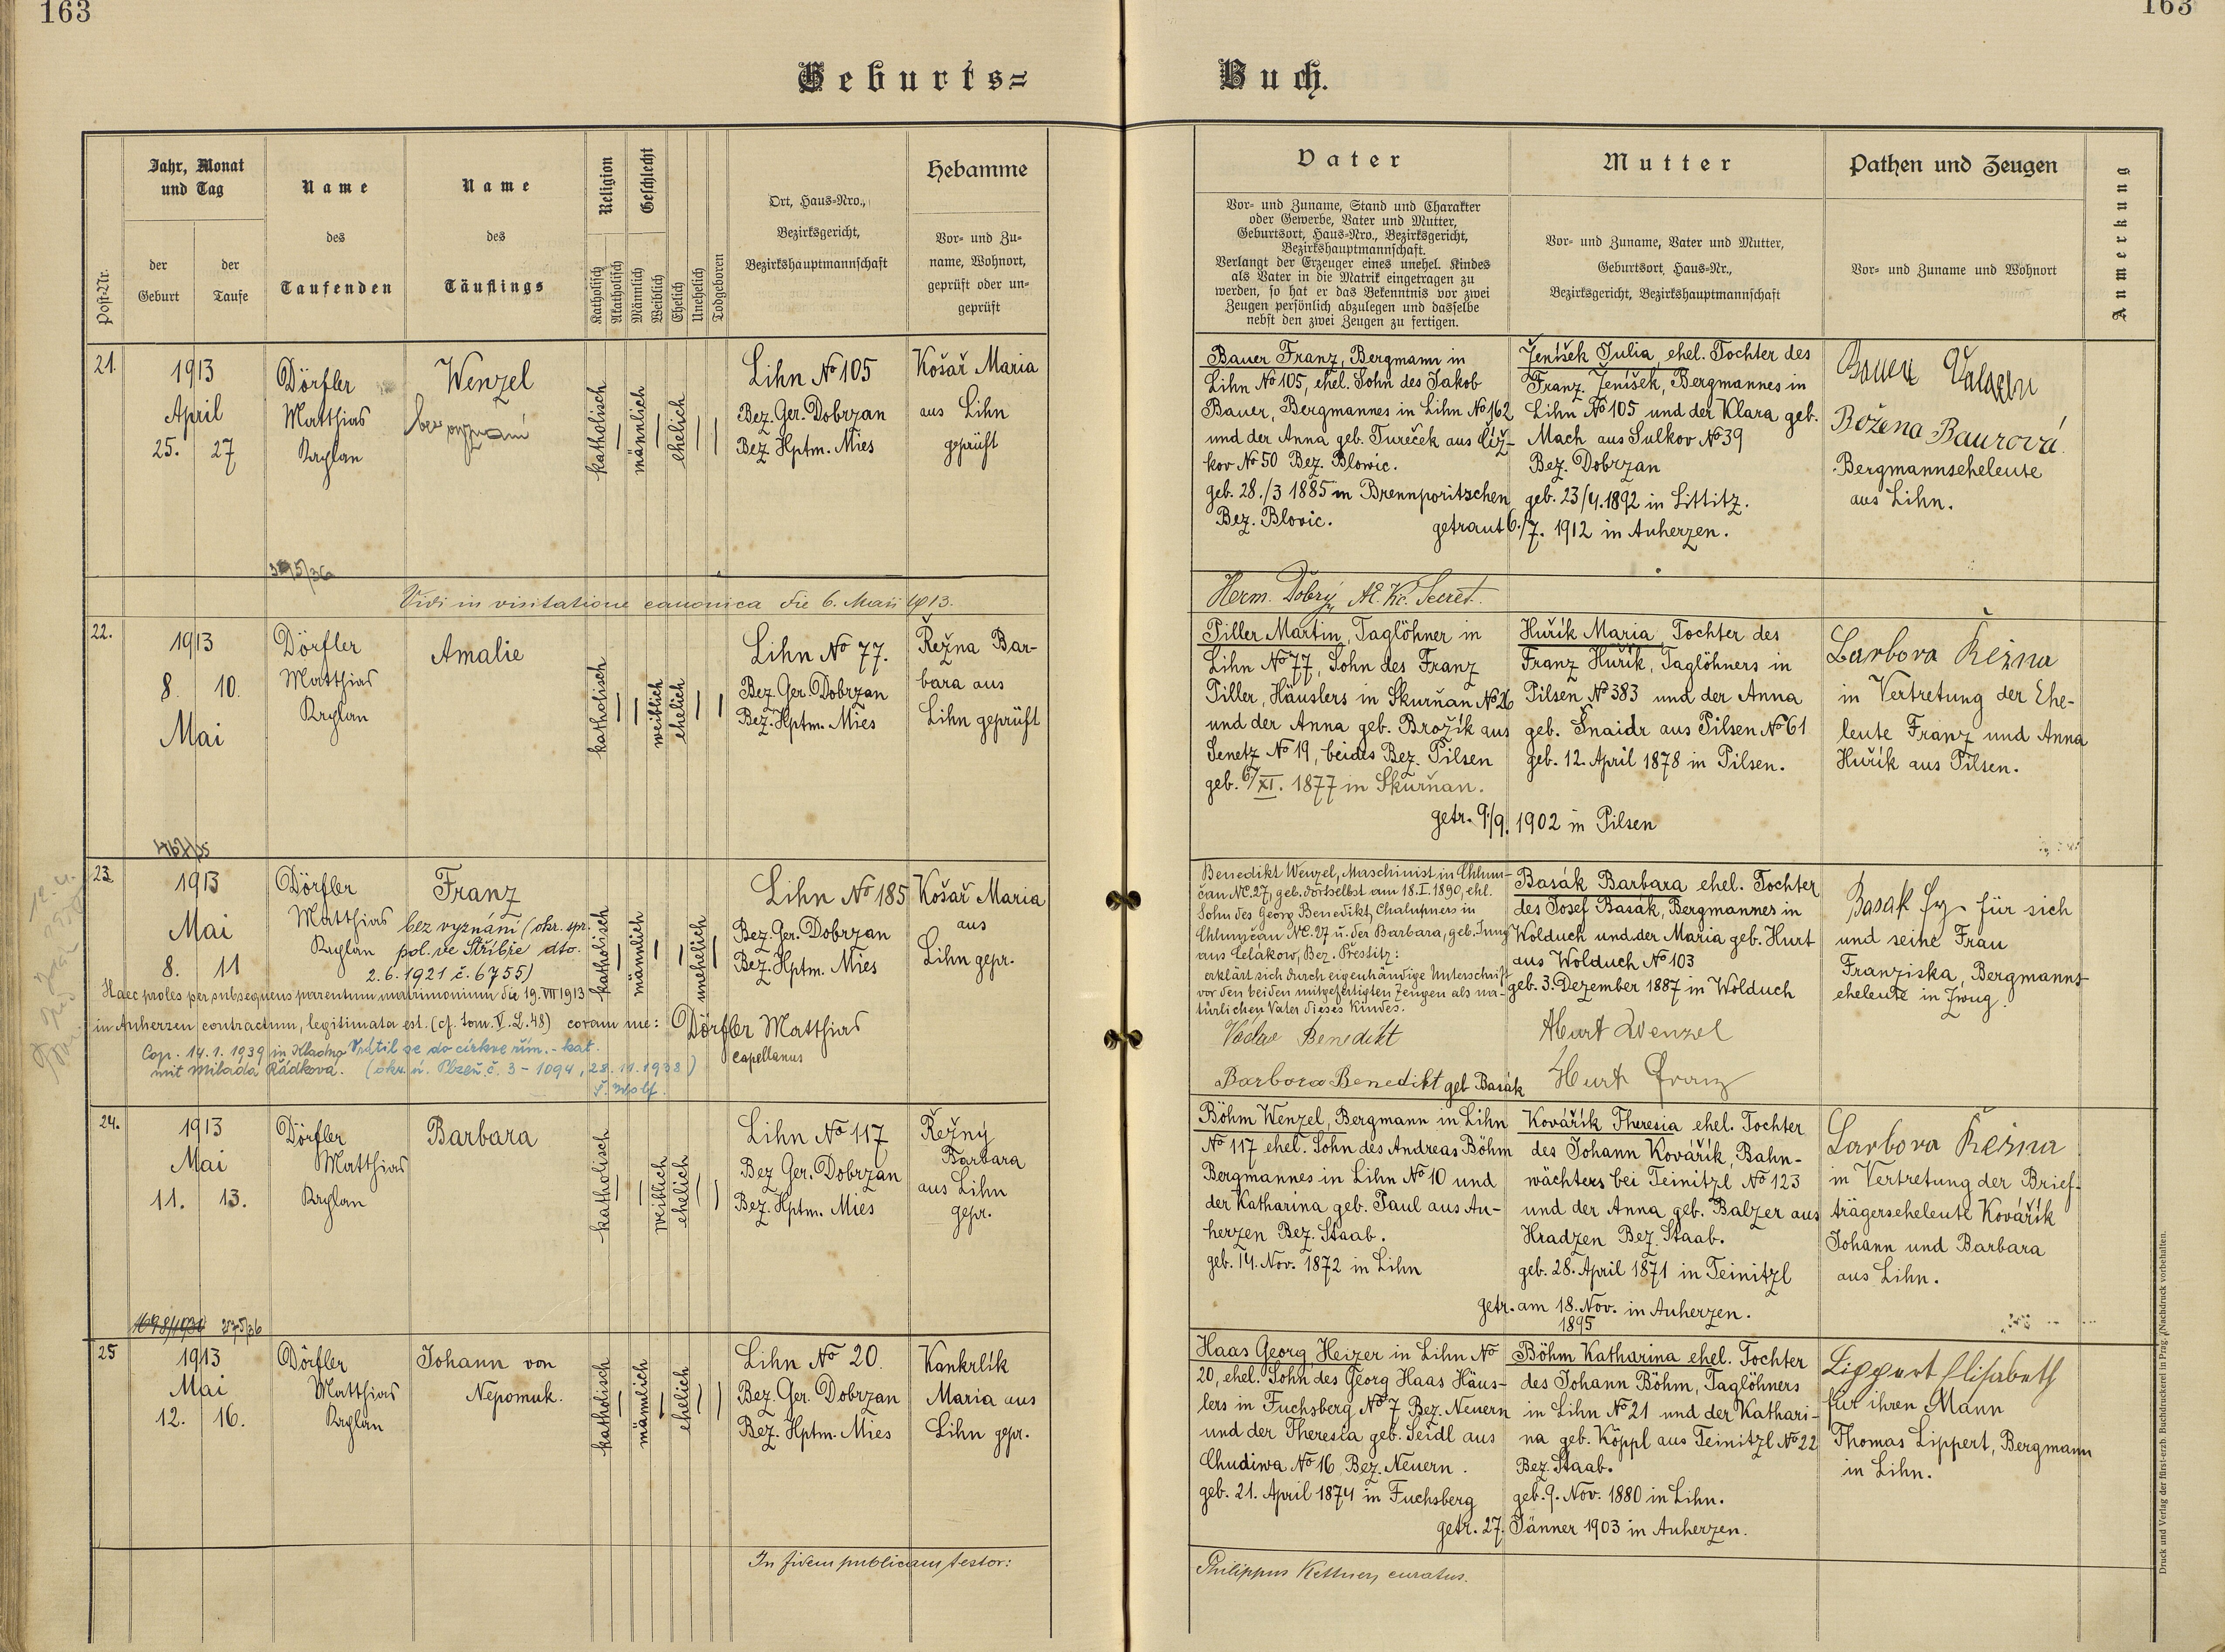 163
163
Geburts=
Buch.
Post-Nr.
Jahr, Monat
und Tag
der
Geburt
der
Taufe
Name
des
Taufenden
Name
des
Täuflings
Religion
Katholisch
Akatholisch
Geschlecht
Männlich
Weiblich
Ehelich
Unehelich
Todgeboren
Ort, Haus-Nro.,
Bezirksgericht,
Bezirkshauptmannschaft
Hebamme
Vor- und Zu-
name, Wohnort,
geprüft oder un-
geprüft
Vater
Vor- und Zuname, Stand und Charakter
oder Gewerbe, Vater und Mutter,
Geburtsort, Haus-Nro., Bezirksgericht,
Bezirkshauptmannschaft.
Verlangt der Erzeuger eines unehel. Kindes
als Vater in die Matrik eingetragen zu
werden, so hat er das Bekenntnis vor zwei
Zeugen persönlich abzulegen und dasselbe
nebst den zwei Zeugen zu fertigen.
Mutter
Vor- und Zuname, Vater und Mutter,
Geburtsort, Haus-Nr.,
Bezirksgericht, Bezirkshauptmannschaft
Pathen und Zeugen
Vor- und Zuname und Wohnort
Anmerkung
21.
1913
April
25. 27
Dörfler
Matthias
Kaplan
Wenzel
bez vyznání
katholisch
männlich
ehelich
Lihn No 105
Bez. Ger. Dobrzan
Bez. Hptm. Mies
Košař Maria
aus Lihn
geprüft
Bauer Franz, Bergmann in
Lihn No 105, ehel. Sohn des Jakob
Bauer, Bergmannes in Lihn No 162
und der Anna geb. Tureček aus Číž-
kov No 50 Bez. Blowic.
geb. 28./3 1885 in Brennporitschen
Bez. Blovic.
Ženíšek Julia, ehel. Tochter des
Franz Ženíšek, Bergmannes in
Lihn No 105 und der Klara geb.
Mach aus Sulkov No 39
Bez. Dobrzan
geb. 23/4. 1892 in Littitz.
getraut 6./7. 1912 in Auherzen.
Bauer
Božena Baurová
Bergmannseheleute
aus Lihn.
Vidi in visitatione canonica die 6. Maii 1913.
Herm. Dobrý, Secret.
22.
1913
8. 10.
Mai
Dörfler
Matthias
Kaplan
Amalie
katholisch
weiblich
ehelich
Lihn No 77.
Bez. Ger. Dobrzan
Bez. Hptm. Mies
Řežna Bar-
bara aus
Lihn geprüft
Piller Martin, Taglöhner in
Lihn No 77, Sohn des Franz
Piller, Häuslers in Skurňan No 26
und der Anna geb. Brožík aus
Senetz No 19, beides Bez. Pilsen
geb. 6/XI. 1877 in Skurňan.
Huřík Maria, Tochter des
Franz Huřík, Taglöhners in
Pilsen No 383 und der Anna
geb. Šnaidr aus Pilsen No 61
geb. 12. April 1878 in Pilsen.
getr. 9/9. 1902 in Pilsen
Barbora Režna
in Vertretung der Ehe-
leute Franz und Anna
Huřík aus Pilsen.
23.
1913
Mai
8. 11
Dörfler
Matthias
Kaplan
Franz
bez vyznání (okr. spr.
pol. ve Stříbře dto.
2. 6. 1921 č. 6755)
katholisch
männlich
unehelich
Lihn No 185
Bez. Ger. Dobrzan
Bez. Hptm. Mies
Košař Maria
aus
Lihn gepr.
Haec proles per subsequens parentum matrimonium die 19. VII 1913
in Auherzen contractum, legitimata est. (cf. tom. V. L. 48) coram me: Dörfler Matthias
Capellanus
Cop. 14. 1. 1939 in Kladno
mit Milada Rádková.
Vrátil se do církve řím.-kat.
(okr. ú. Plzeň č. 3 - 1094, 28. 11. 1938)
Benedikt Wenzel, Maschinist in Chlum-
čan NC. 27, geb. dortselbst am 18. I. 1890, ehl.
Sohn des Georg Benedikt, Chalupners in
Chlumčan NC. 27 u. der Barbara, geb. Jung
aus Čelákow, Bez. Přestitz:
erklärt sich durch eigenhändige Unterschrift
vor den beiden mitgefertigten Zeugen als na-
türlichen Vater dieses Kindes.
Václav Benedikt
Barbora Benedikt geb Basák
Basák Barbara ehel. Tochter
des Josef Basák, Bergmannes in
Wolduch und der Maria geb. Hurt
aus Wolduch No 103
geb. 3. Dezember 1887 in Wolduch
Hurt Wenzel
Hurt Franz
Basak Fr. für sich
und seine Frau
Franziska, Bergmanns-
eheleute in Zwug.
24.
1913
Mai
11. 13.
Dörfler
Matthias
Kaplan
Barbara
katholisch
weiblich
ehelich
Lihn No 117
Bez. Ger. Dobrzan
Bez. Hptm. Mies
Řežný
Barbara
aus Lihn
gepr.
Böhm Wenzel, Bergmann in Lihn
No 117 ehel. Sohn des Andreas Böhm
Bergmannes in Lihn No 10 und
der Katharina geb. Paul aus Au-
herzen Bez. Staab.
geb. 14. Nov. 1872 in Lihn
Kovářík Theresia ehel. Tochter
des Johann Kovářík, Bahn-
wächters bei Teinitzl No 123
und der Anna geb. Balzer aus
Hradzen Bez. Staab.
geb. 28. April 1871 in Teinitzl
getr. am 18. Nov. in Auherzen.
1895
Barbora Režna
in Vertretung der Brief-
trägerseheleute Kovářík
Johann und Barbara
aus Lihn.
275/36
25
1913
Mai
12. 16.
Dörfler
Matthias
Kaplan
Johann von
Nepomuk.
katholisch
männlich
ehelich
Lihn No 20.
Bez. Ger. Dobrzan
Bez. Hptm. Mies
Kankrlík
Maria aus
Lihn gepr.
Haas Georg, Heizer in Lihn No
20, ehel. Sohn des Georg Haas Häus-
lers in Fuchsberg No 7 Bez. Neuern
und der Theresia geb. Seidl aus
Chudiwa No 16, Bez. Neuern.
geb. 21. April 1874 in Fuchsberg
Böhm Katharina ehel. Tochter
des Johann Böhm, Taglöhners
in Lihn No 21 und der Kathari-
na geb. Köppl aus Teinitzl No 22
Bez. Staab.
geb. 9. Nov. 1880 in Lihn.
getr. 27. Jänner 1903 in Auherzen.
Lippert Elisabeth
für ihren Mann
Thomas Lippert, Bergmann
in Lihn.
In fidem publicam testor:
Philippus Kettner, curatus.
Druck und Verlag der fürst-erzb. Buchdruckerei in Prag. (Nachdruck vorbehalten.